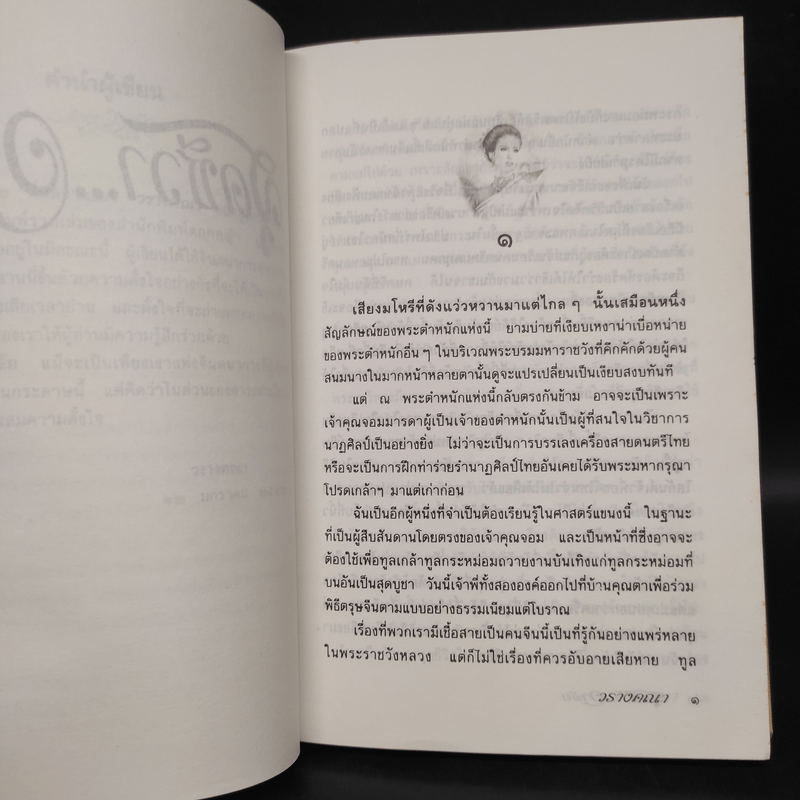 ๑
เสียงมโหรีที่ดังแว่วหวานมาแต่ไกล ๆ นั้นเสมือนหนึ่ง
สัญลักษณ์ของพระตำหนักแห่งนี้ ยามบ่ายที่เงียบเหงาน่าเบื่อหน่าย
ของพระตำหนักอื่น ๆ ในบริเวณพระบรมมหาราชวังที่คึกคักด้วยผู้คน
สนมนางในมากหน้าหลายตานั้นดูจะแปรเปลี่ยนเป็นเงียบสงบทันที
แต่ ณ พระตำหนักแห่งนี้กลับตรงกันข้าม อาจจะเป็นเพราะ
เจ้าคุณจอมมารดาผู้เป็นเจ้าของตำหนักนั้นเป็นผู้ที่สนใจในวิชาการ
นาฏศิลป์เป็นอย่างยิ่ง ไม่ว่าจะเป็นการบรรเลงเครื่องสายดนตรีไทย
หรือจะเป็นการฝึกท่าร่ายรำนาฏศิลป์ไทยอันเคยได้รับพระมหากรุณา
โปรดเกล้าฯ มาแต่เก่าก่อน
ฉันเป็นอีกผู้หนึ่งที่จำเป็นต้องเรียนรู้ในศาสตร์แขนงนี้ ในฐานะ
ที่เป็นผู้สืบสันดานโดยตรงของเจ้าคุณจอม และเป็นหน้าที่ซึ่งอาจจะ
ต้องใช้เพื่อทูลเกล้าทูลกระหม่อมถวายงานบันเทิงแก่ทูลกระหม่อมที่
บนอันเป็นสุดบูชา วันนี้เจ้าพี่ทั้งสององค์ออกไปที่บ้านคุณตาเพื่อร่วม
พิธีตรุษจีนตามแบบอย่างธรรมเนียมแต่โบราณ
เรื่องที่พวกเรามีเชื้อสายเป็นคนจีนนี้เป็นที่รู้กันอย่างแพร่หลาย
ในพระราชวังหลวง แต่ก็ไม่ใช่เรื่องที่ควรอับอายเสียหาย ทูล
วรางคณา ๑